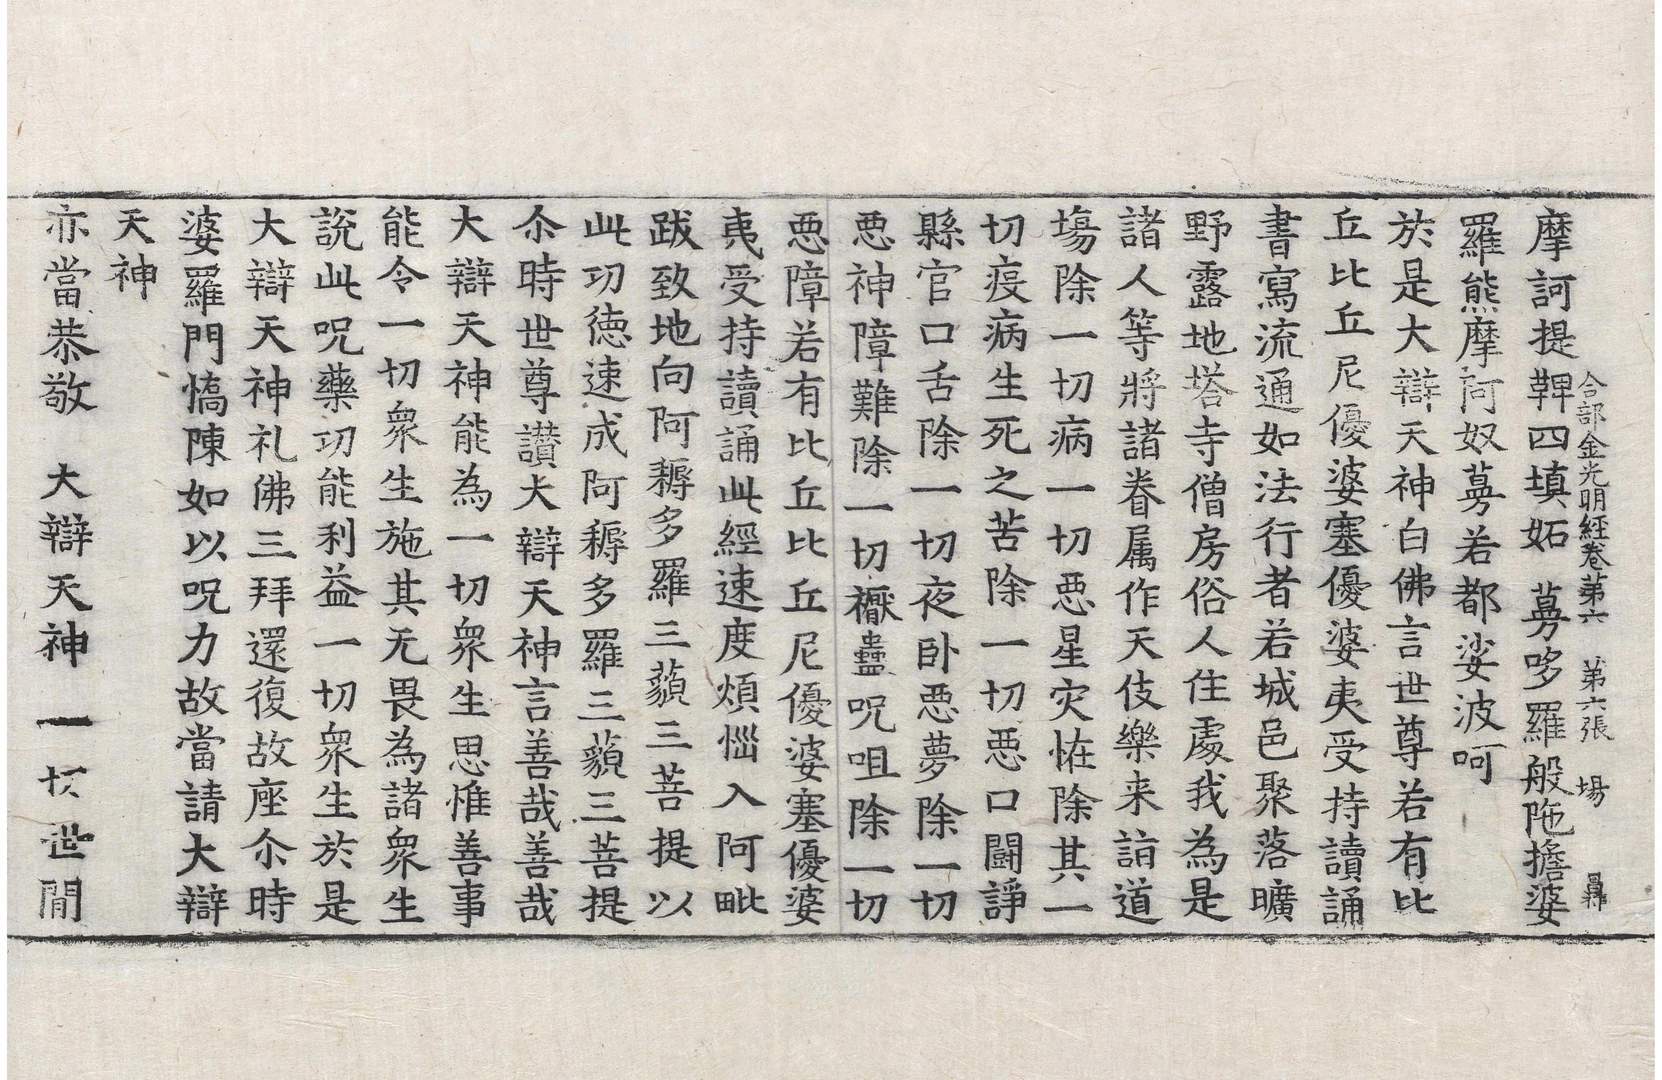 合部金光明經卷第六　第六張　場
摩訶提鞞四填妬　蒪哆羅般陁擔婆
羅熊摩訶奴蒪若都娑波呵
於是大辯天神白佛言世尊若有比
丘比丘尼優婆塞優婆夷受持讀誦
書寫流通如法行者若城邑聚落曠
野露地塔寺僧房俗人住處我為是
諸人等將諸眷属作天伎樂来詣道
塲除一切病一切惡星灾恠除其一
切疫病生死之苦除一切惡口闘諍
縣官口舌除一切夜卧惡夢除一切
惡神障難除一切禳蠱呪咀除一切
惡障若有比丘比丘尼優婆塞優婆
夷受持讀誦此經速度煩惱入阿毗
跋致地向阿耨多羅三藐三菩提以
此㓛德速成阿耨多羅三藐三菩提
尒時世尊讃大辯天神言善哉善哉
大辯天神能為一切衆生思惟善事
能令一切衆生施其无畏為諸衆生
說此呪藥㓛能利益一切衆生於是
大辯天神礼佛三拜還復故座尒時
婆羅門憍陳如以呪力故當請大辯
天神
亦當恭敬　大辯天神　一切世間